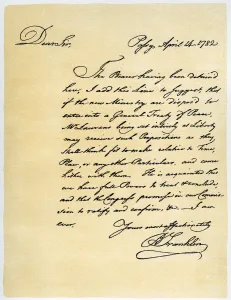 Dear Sir,
Passy, April 14. 1782
The Bearer having been detained
here, I add this Line to suggest, that
if the new Ministry are disposed to
enter into a General Treaty of Peace,
Mr Laurens being set entirely at Liberty
may receive such Propositions as they
shall think fit to make relative to Time,
Place, or any other Particulars, and come
hither with them. He is acquainted that
we have full Powers to treat & conclude,
and that the Congress promise in our Commis-
sion to ratify and confirm, &c. I am
ever,
Yours most affectionately
B Franklin